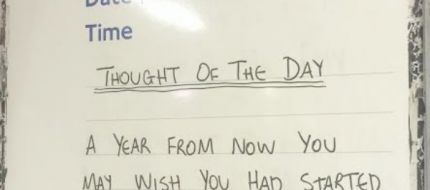 Date
Time
THOUGHT OF THE DAY
A YEAR FROM NOW YOU
MAY WISH YOU HAD STARTED